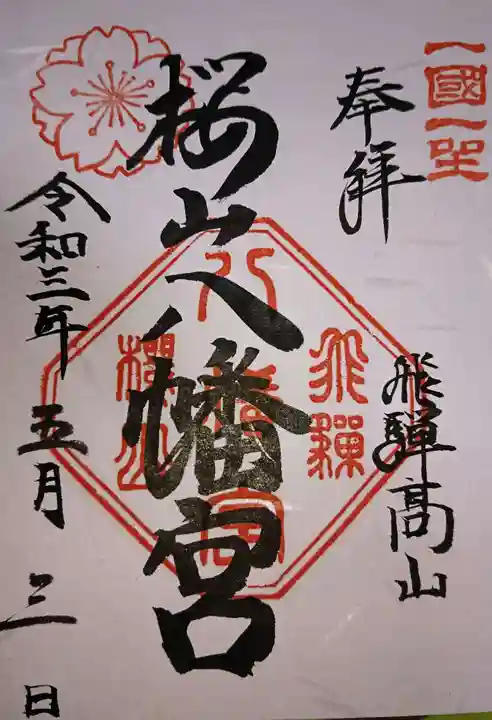 一國一社
奉拝
飛騨高山
桜山八幡宮
飛驒
八幡宮
櫻山
令和三年五月三日